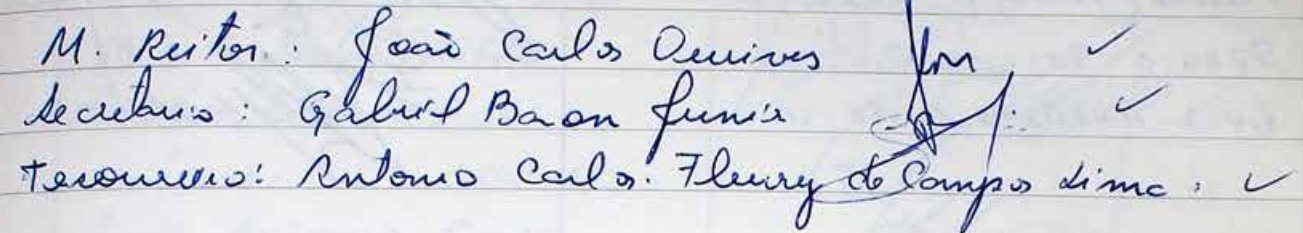 M. Reitor: João Carlos
Secretario: Gabriel Baron Junior
Tesoureiro: Antonio Carlos Fleury de Campos Lima